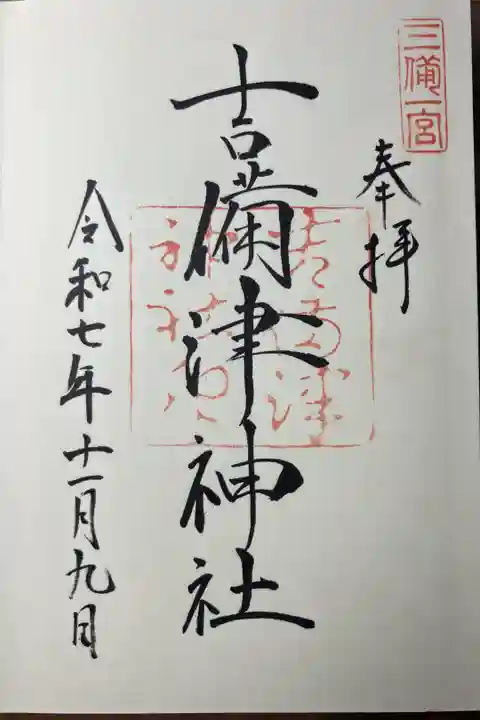 三備一宮
奉拝
吉備津神社
令和七年十一月九日